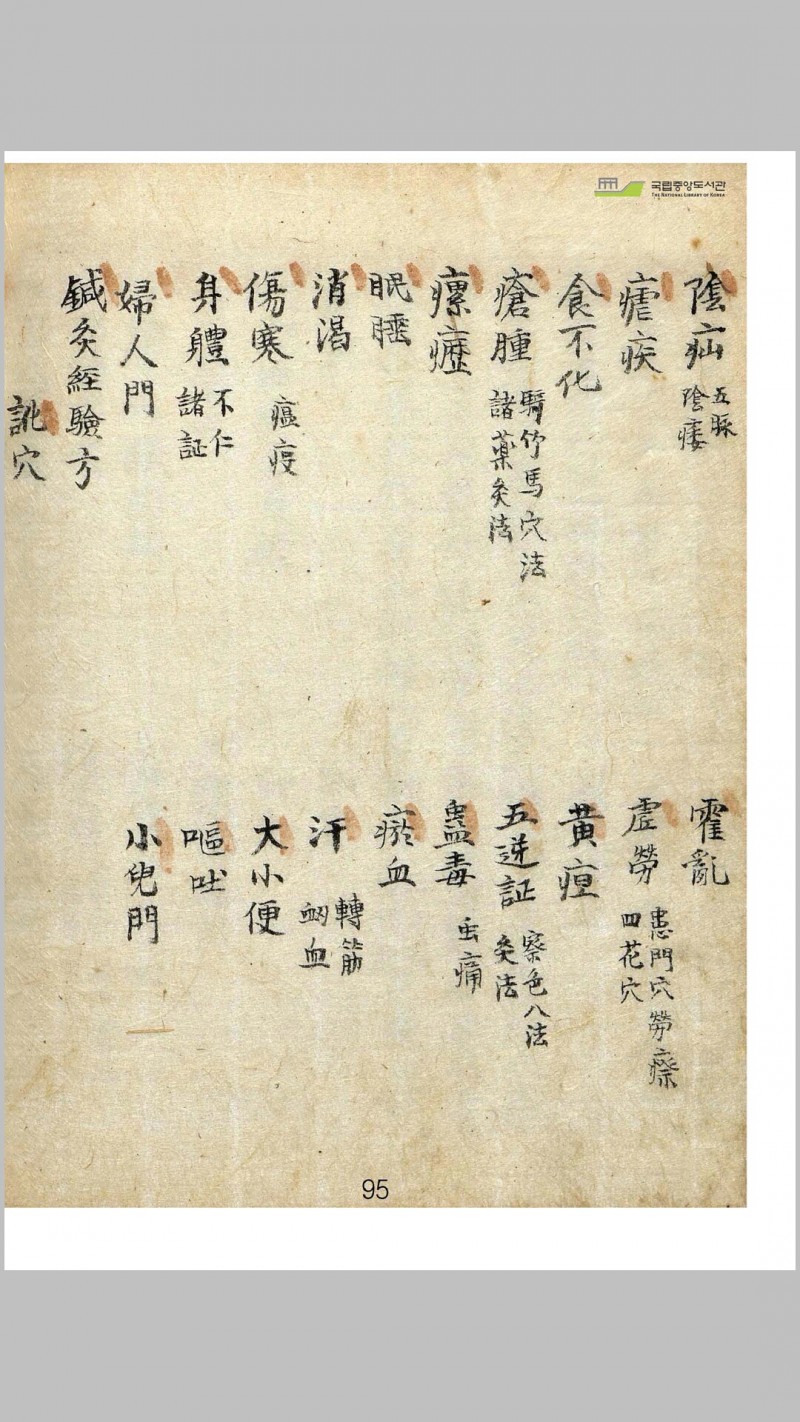 국립중앙도서관
THE NATIONAL LIBRARY OF KOREA
陰疝 五脉 陰痿
霍亂
瘧疾
虛勞 患門穴 勞瘵 四花穴
食不化
黃疸
瘡腫 騎竹馬穴法 諸藥灸法
五逆証 察色八法 灸法
瘰癧
蠱毒 虫痛
眠睡
瘀血
消渴
汗 轉筋 衂血
傷寒 瘟疫
大小便
身體 不仁 諸証
嘔吐
婦人門
小兒門
鍼灸經驗方
訛穴
95